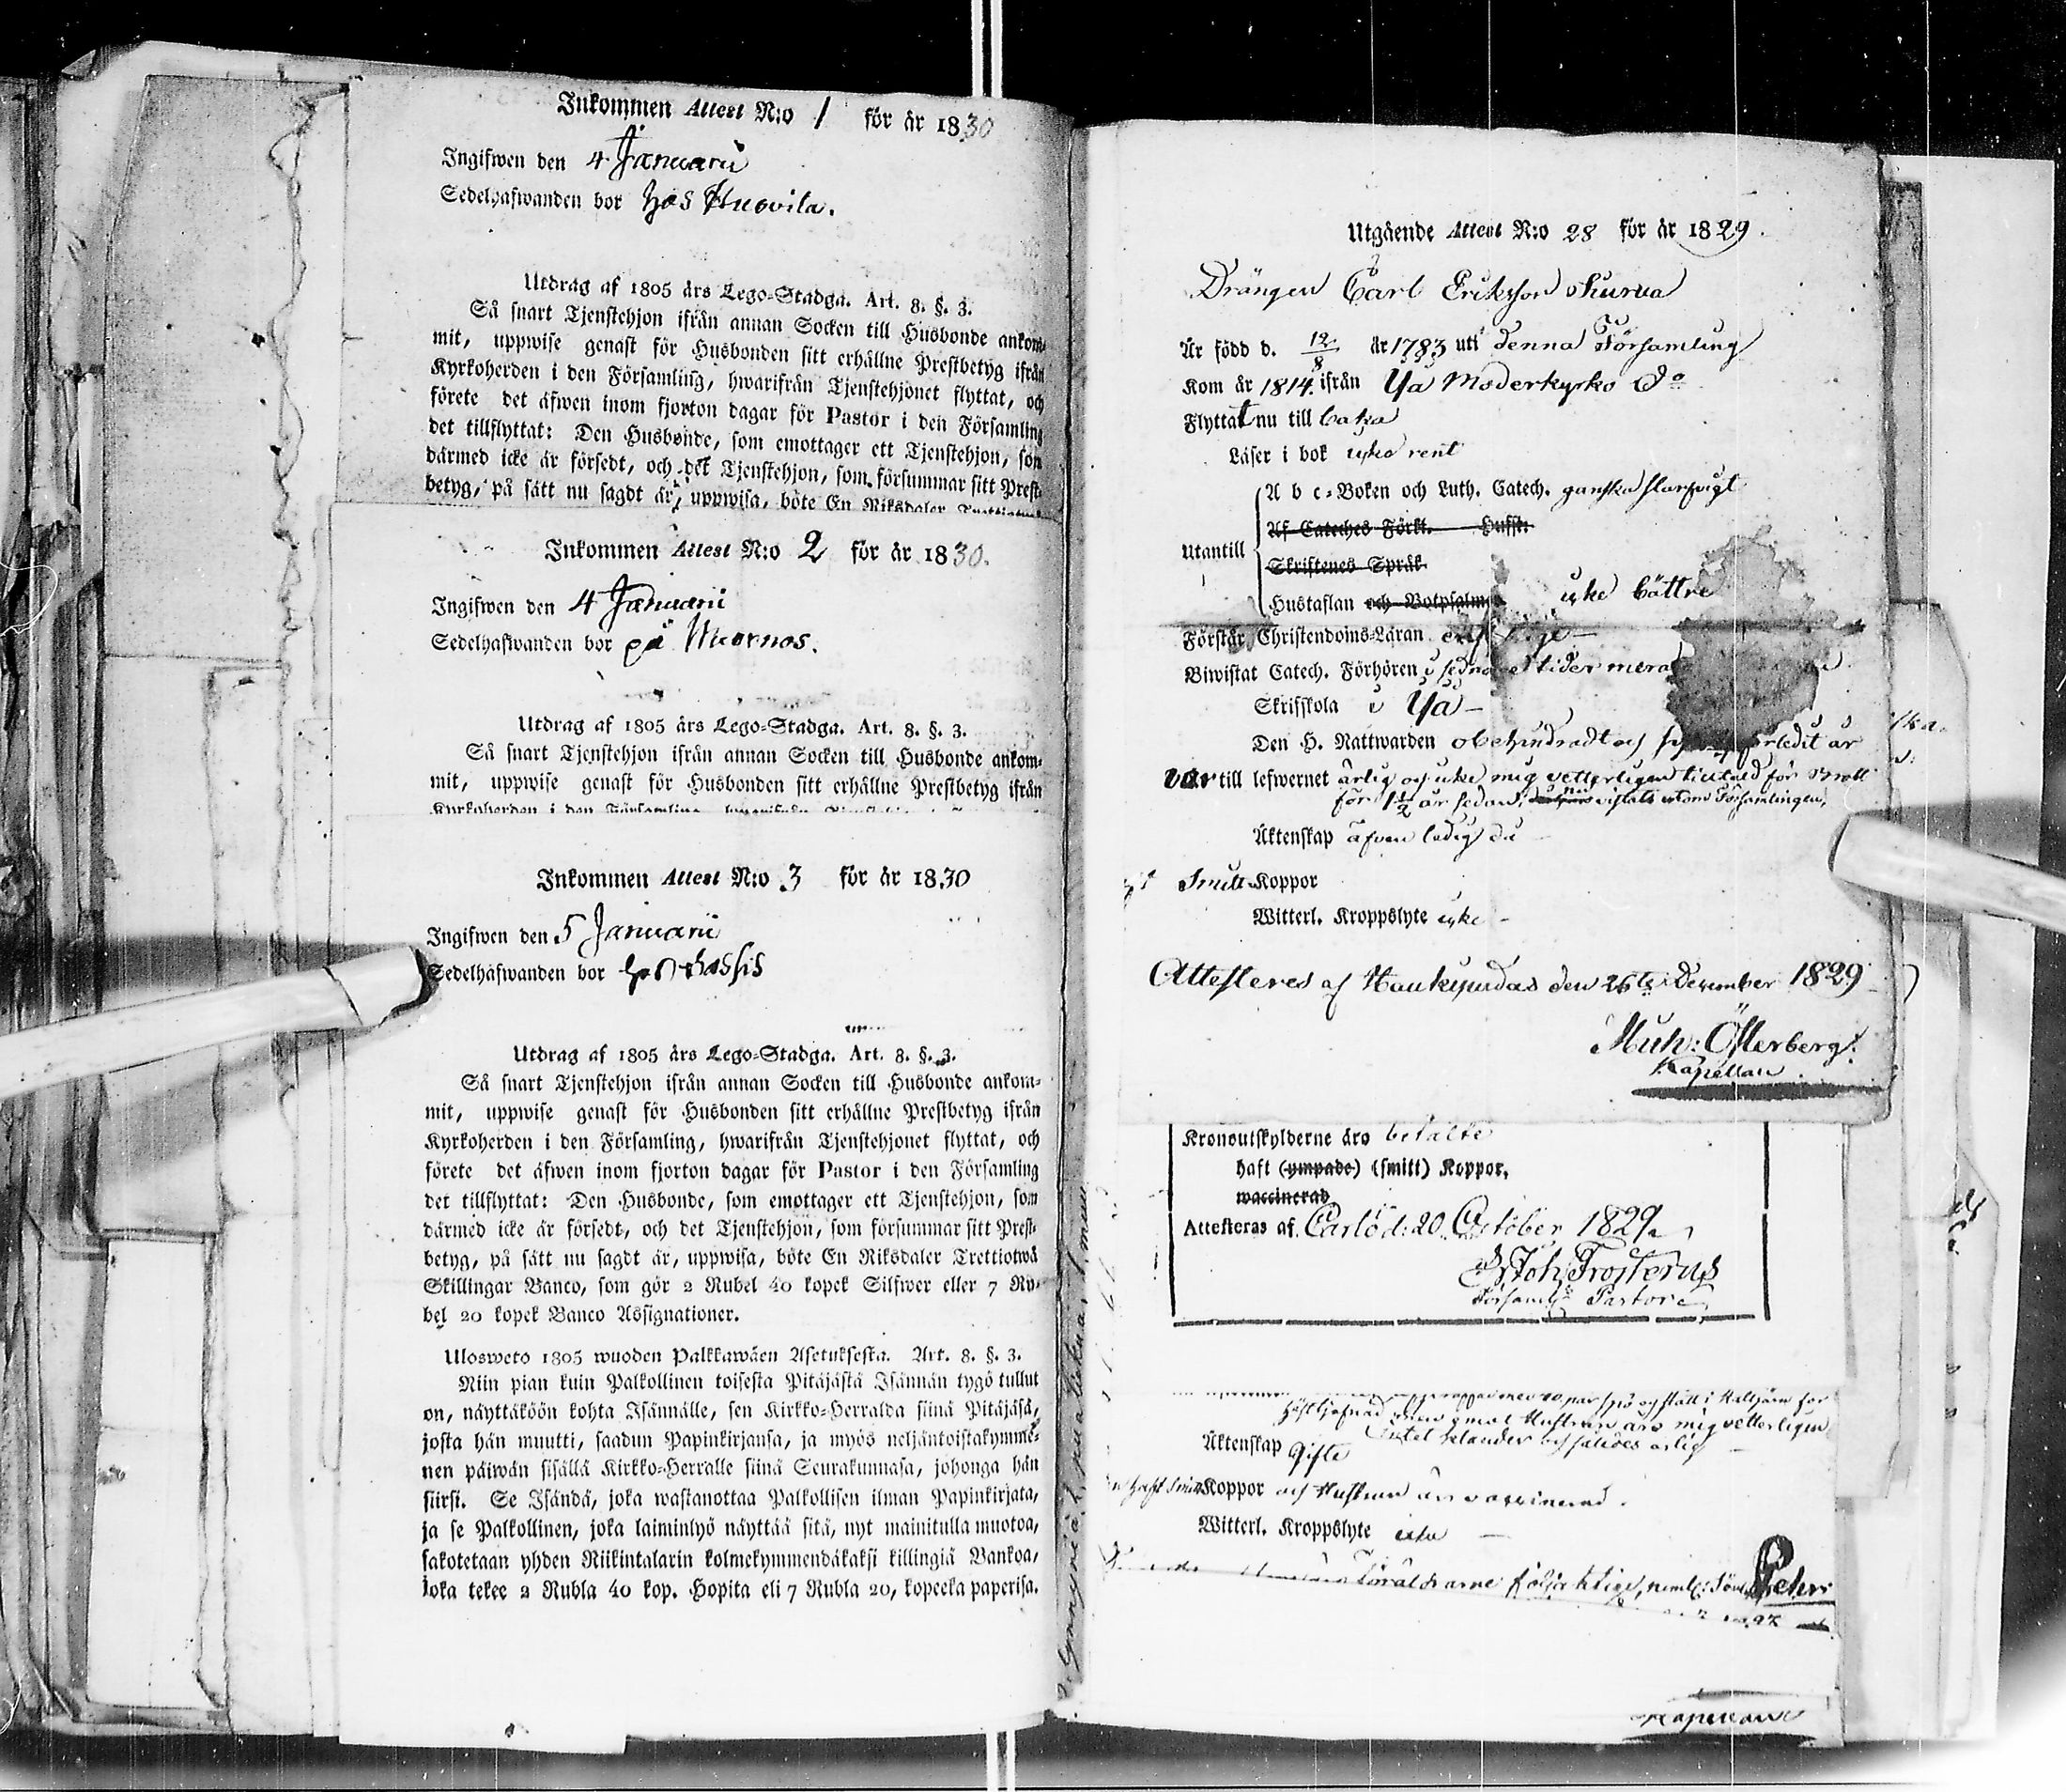 Inkommen Attest N:o 1 för år 1830
Ingifwen den 4 Januarii
Sedelhafwanden bor hos Huovila.
Utdrag af 1805 års Lego-Stadga. Art. 8. §. 3.
Så snart Tjenstehjon ifrån annan Socken till Husbonde ankom-
mit, uppwise genast för Husbonden sitt erhållne Prestbetyg ifrån
Kyrkoherden i den Församling, hwarifrån Tjenstehjonet flyttat, och
förete det äfwen inom fjorton dagar för Pastor i den Församling
det tillflyttat: Den Husbonde, som emottager ett Tjenstehjon, som
därmed icke är försedt, och det Tjenstehjon, som försummar sitt Prest-
betyg, på sätt nu sagdt är, uppwisa, böte En Riksdaler
Inkommen Attest N:o 2 för år 1830.
Ingifwen den 4 Januarii
Sedelhafwanden bor på Wuornos.
Utdrag af 1805 års Lego-Stadga. Art. 8. §. 3.
Så snart Tjenstehjon ifrån annan Socken till Husbonde ankom-
mit, uppwise genast för Husbonden sitt erhållne Prestbetyg ifrån
Kyrkoherden i den Församling
Inkommen Attest N:o 3 för år 1830
Ingifwen den 5 Januarii
Sedelhafwanden bor
Utdrag af 1805 års Lego-Stadga. Art. 8. §. 3.
Så snart Tjenstehjon ifrån annan Socken till Husbonde ankom-
mit, uppwise genast för Husbonden sitt erhållne Prestbetyg ifrån
Kyrkoherden i den Församling, hwarifrån Tjenstehjonet flyttat, och
förete det äfwen inom fjorton dagar för Pastor i den Församling
det tillflyttat: Den Husbonde, som emottager ett Tjenstehjon, som
därmed icke är försedt, och det Tjenstehjon, som försummar sitt Prest-
betyg, på sätt nu sagdt är, uppwisa, böte En Riksdaler Trettiotwå
Skillingar Banco, som gör 2 Rubel 40 kopek Silfwer eller 7 Ru-
bel 20 kopek Banco Assignationer.
Ulosweto 1805 wuoden Palkkawäen Asetuksesta. Art. 8. §. 3.
Niin pian kuin Palkollinen toisesta Pitäjästä Isännän tygö tullut
on, näyttäköön kohta Isännälle, sen Kirkko-Herralda siinä Pitäjäsä,
josta hän muutti, saadun Papinkirjansa, ja myös neljäntoistakymme-
nen päiwän sisällä Kirkko-Herralle siinä Seurakunnasa, johonga hän
siirsi. Se Isändä, joka wastanottaa Palkollisen ilman Papinkirjata,
ja se Palkollinen, joka laiminlyö näyttää sitä, nyt mainitulla muotoa,
sakotetaan yhden Riikintalarin kolmekymmendäkaksi killingiä Bankoa,
joka tekee 2 Rubla 40 kop. Hopita eli 7 Rubla 20, kopeeka paperisa.
Utgående Attest N:o 28 för år 1829.
Drängen Carl Eriksson Skurva
Är född d. 12/8 år 1783 uti denna Församling
Kom år 1814 ifrån Ijo Moderkyrko Do
Flyttat nu till
Läser i bok icke rent
Utantill
A b c-Boken och Luth. Catech. ganska slarfvigt
Af Cateches Förkl. Hufst:
Skriftenes Språk
Hustaflan och Botpsalm icke bättre
Förstår Christendoms-Läran
Biwistat Catech. Förhören i sednare tider mera
Skrifskola i Ijo
Den H. Nattwarden obehindradt och
var till lefwernet ärlig och icke mig vetterligen tilltald för brott
för 1 1/2 år sedan, vistats utom Församlingen,
Äktenskap äfven ledig då
Smitt Koppor
Witterl. Kroppslyte icke
Attesteres af Haukipudas den 26te December 1829
Mich: Österberg.
Kapellan.
Kronoutskylderne äro betalte
haft (ympade) (smitt) Koppor,
waccinerad
Attesteras af Carlö d: 20 October 1829.
Joh: Frosterus
Församl:s Pastor
Äktenskap Gifte
haft smitt Koppor och Hustrun är vaccinerad.
Witterl. Kroppslyte icke
Föräldrarne följa Pehr
Kapellan